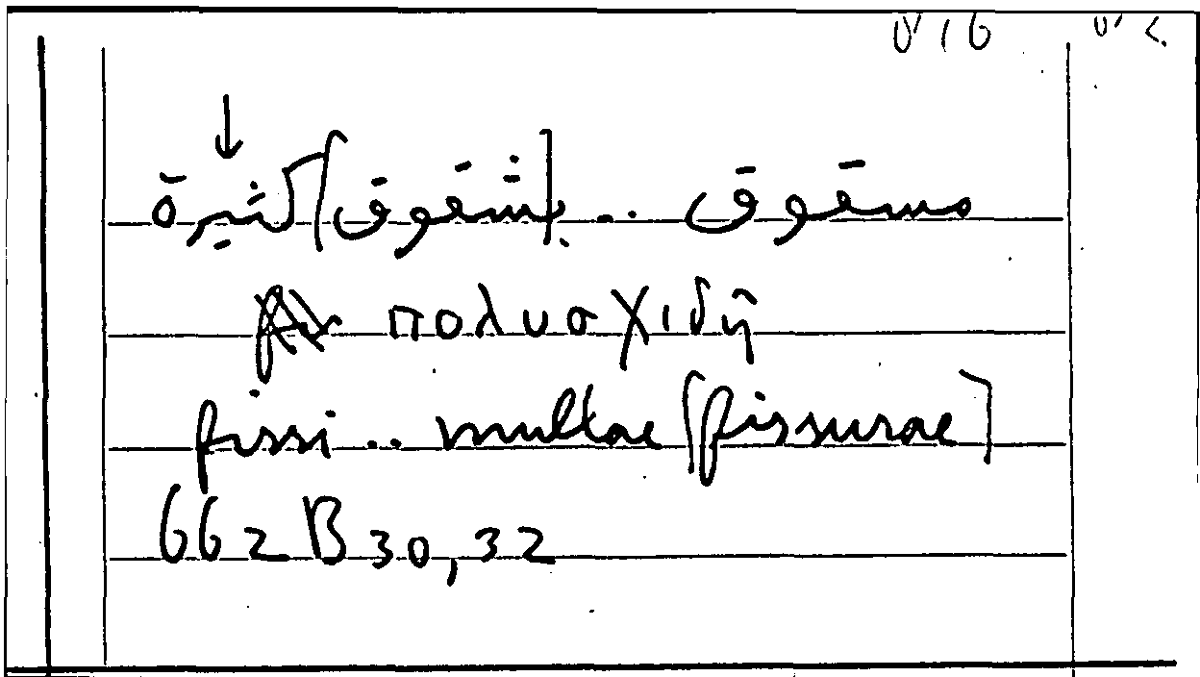 مسقوق .. [بشقوق] كثيرة
πολυσχιδῆ
fissi .. multae [fissurae]
662 B 30, 32